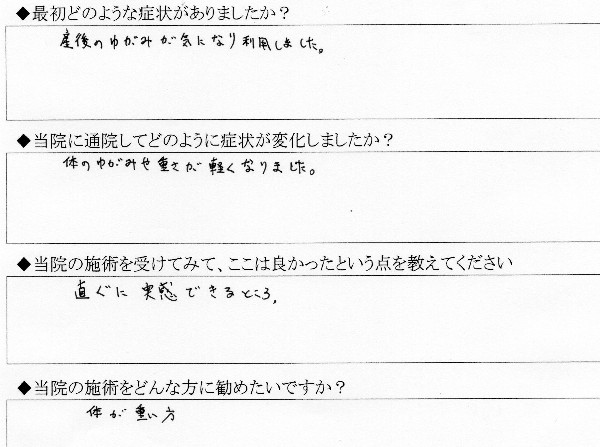 ◆最初どのような症状がありましたか？
産後のゆがみが気になり利用しました。
◆当院に通院してどのように症状が変化しましたか？
体のゆがみや重さが軽くなりました。
◆当院の施術を受けてみて、ここは良かったという点を教えてください
直ぐに実感できるところ。
◆当院の施術をどんな方に勧めたいですか？
体が重い方